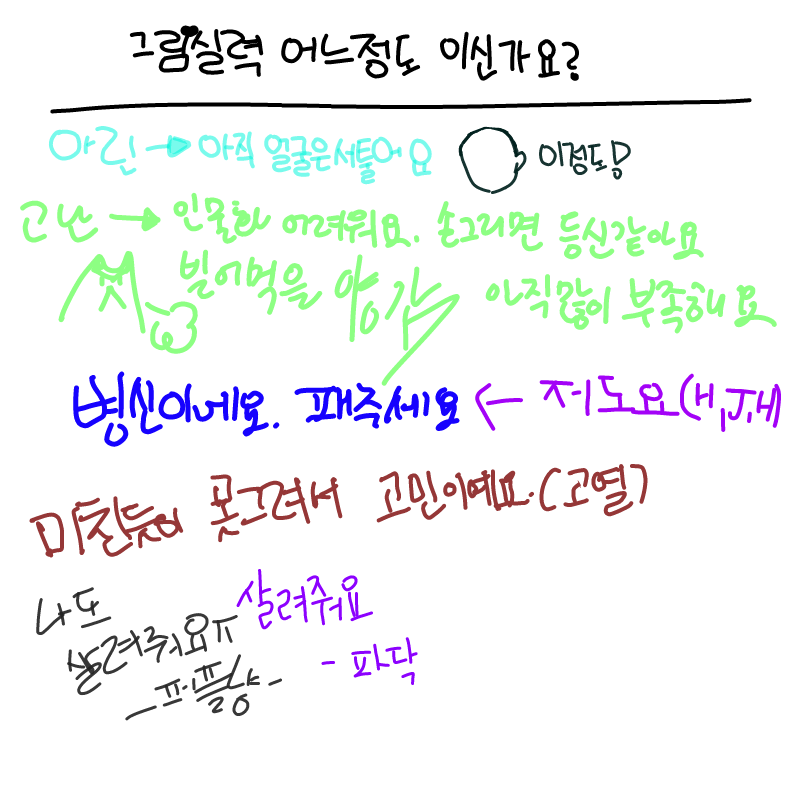 그림실력 어느정도 이신가요?
아린 → 아직 얼굴은서툴어요 이정도!
고난 → 인물화 어려워요. 손그리면 등신같아요
빌어먹을 양감 아직많이 부족해요
병신이네요. 패주세요 ← 저도요(H,J,H)
미친듯이 못그려서 고민이예요.(고열)
나도
살려줘요ㅠ
-퍼플량-
살려줘요
- 파닥